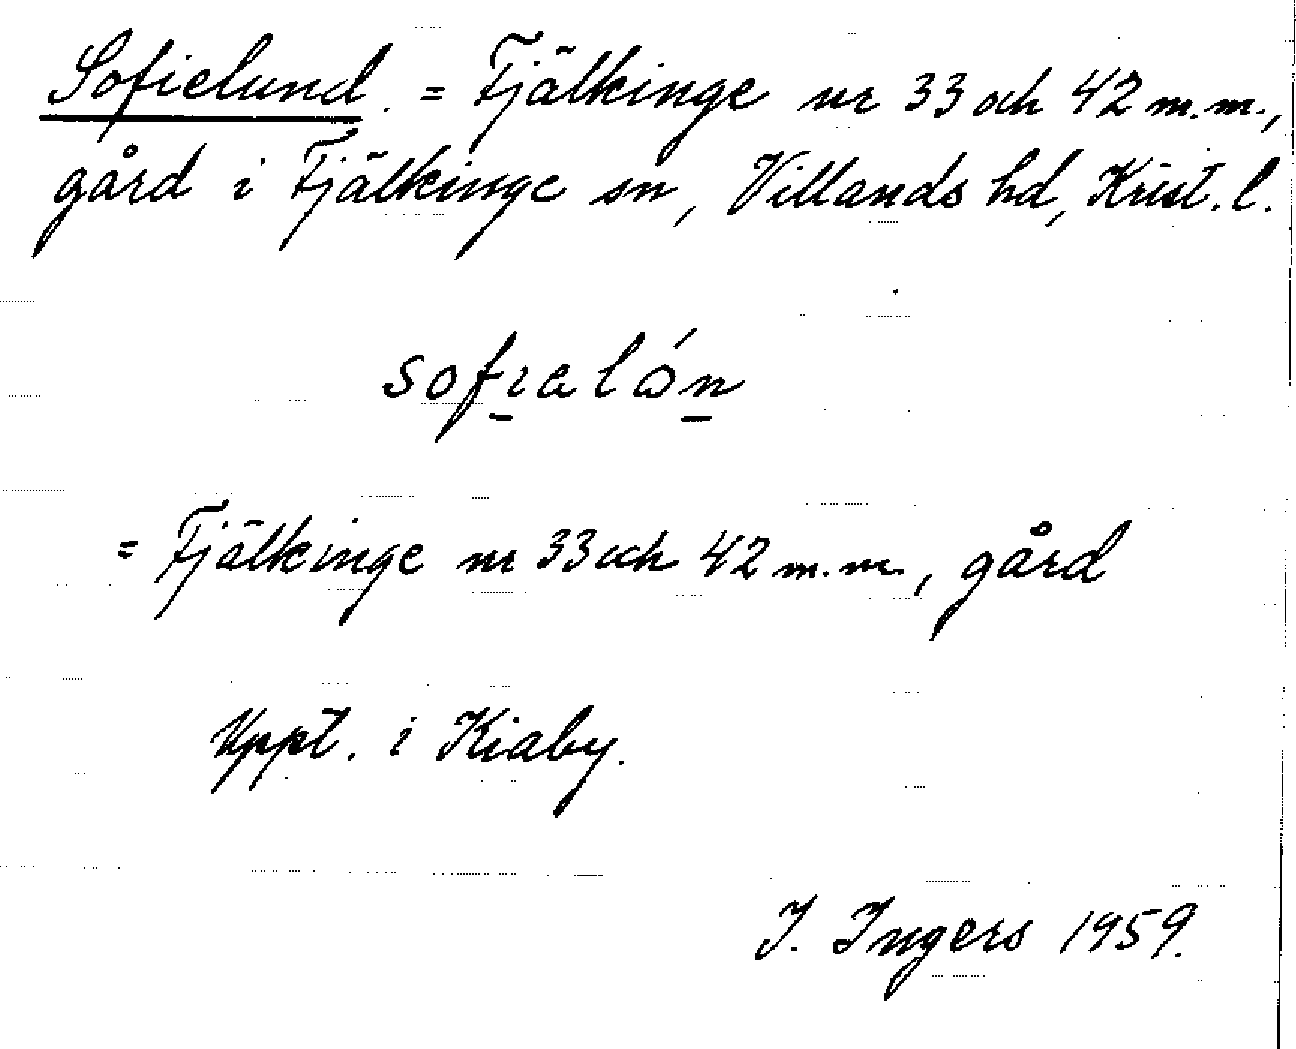 Sofielund. = Fjälkinge nr 33 och 42 m.m.,
gård i Fjälkinge sn, Villands hd, Krist. l.
sofıalón
= Fjälkinge nr 33 och 42 m.m., gård
Uppt. i Kiaby.
I. Ingers 1959.